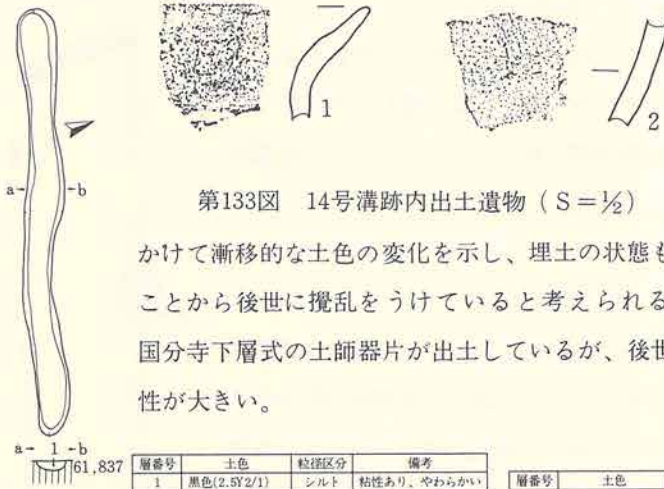 1
2
a
b
第133図 14号溝跡内出土遺物（S=½）
かけて漸移的な土色の変化を示し、埋土の状態も
ことから後世に攪乱をうけていると考えられる
国分寺下層式の土師器片が出土しているが、後世
性が大きい。
a 1 b
61,837
層番号 土色 粒径区分 備考
1 黒色(2.5Y2/1) シルト 粘性あり、やわらかい
層番号 土色